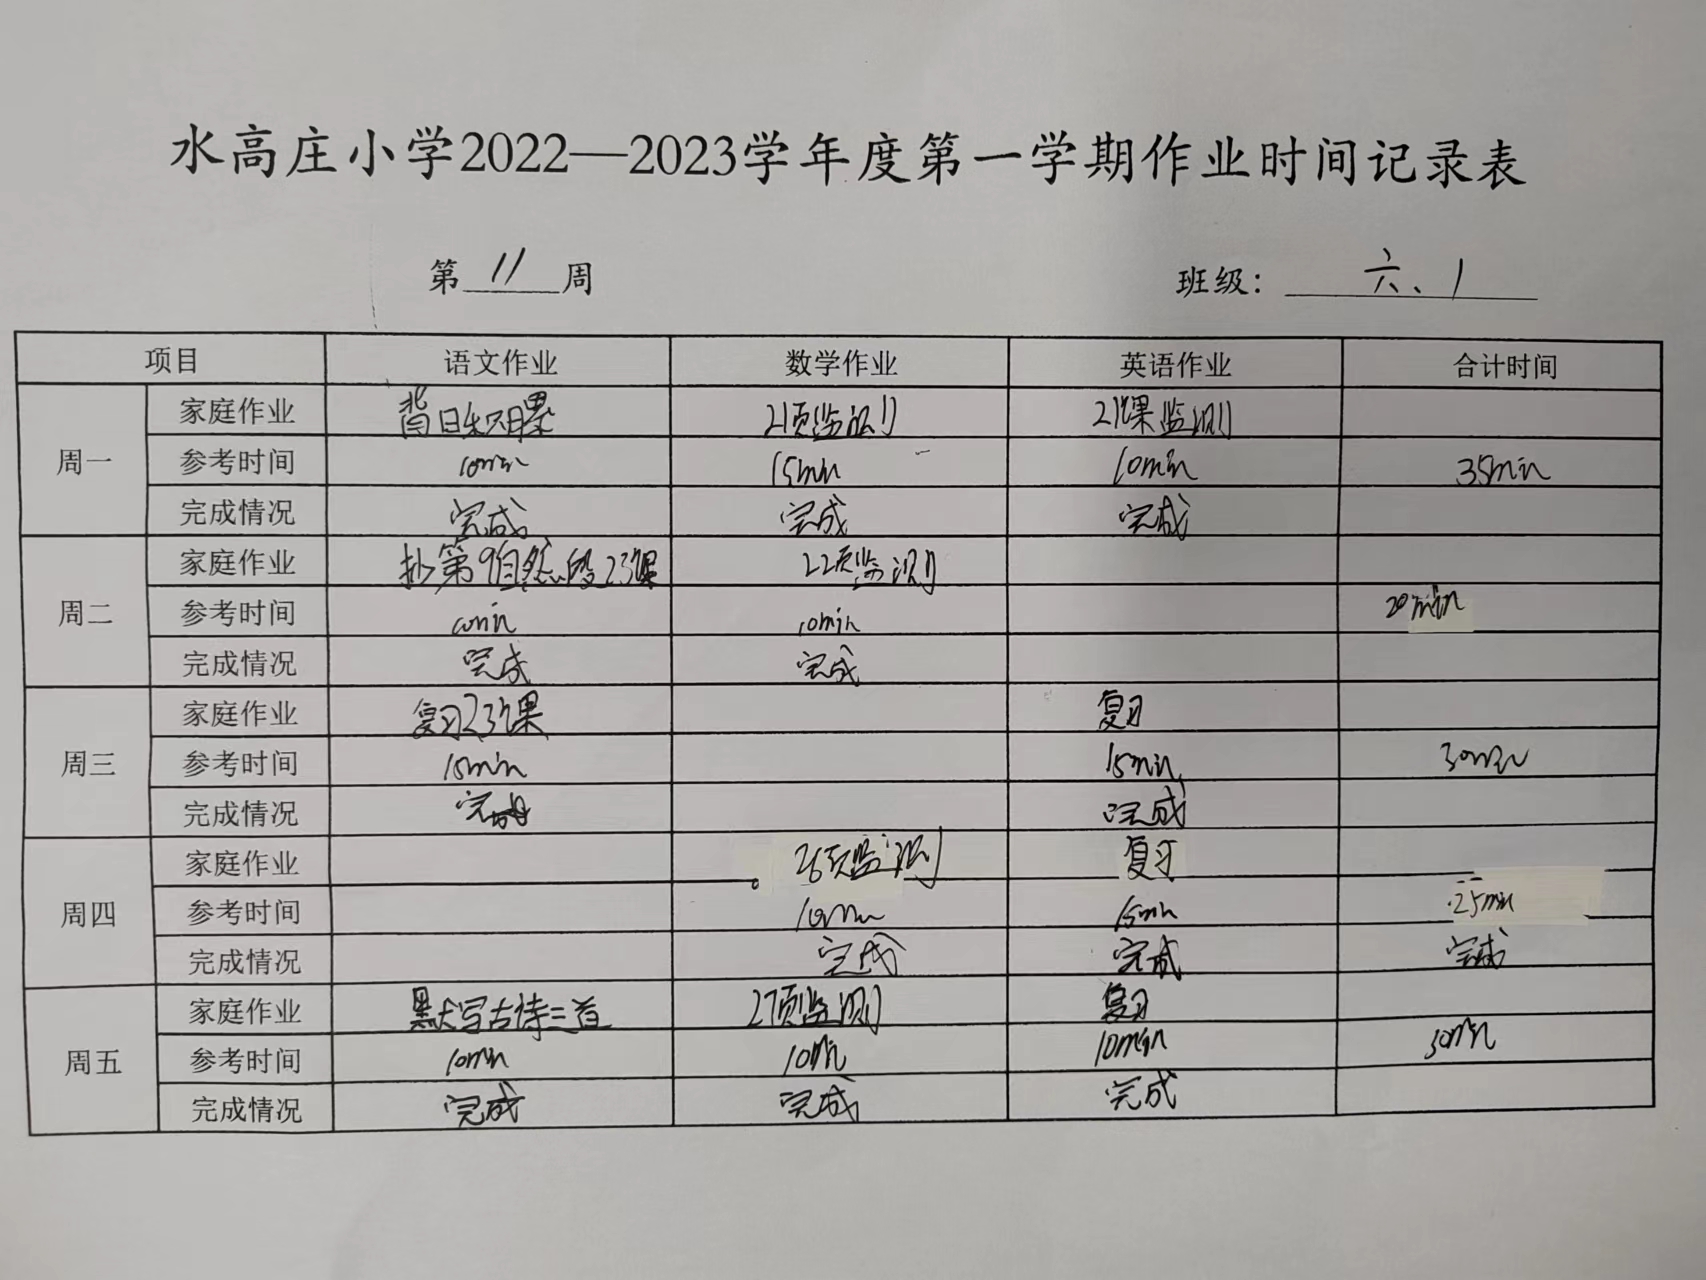 水高庄小学2022—2023学年度第一学期作业时间记录表
第 11 周 班级： 六、1
项目 语文作业 数学作业 英语作业 合计时间
周一
家庭作业 背日积月累 21页监测 21课监测
参考时间 10min 15min 10min 35min
完成情况 完成 完成 完成
周二
家庭作业 抄第9自然段23课 22页监测
参考时间 10min 10min 20min
完成情况 完成 完成
周三
家庭作业 复习23课 复习
参考时间 15min 15min 30min
完成情况 完成 完成
周四
家庭作业 26页监测 复习
参考时间 10min 15min 25min
完成情况 完成 完成 完成
周五
家庭作业 默写古诗三首 27页监测 复习
参考时间 10min 10min 10min 30min
完成情况 完成 完成 完成